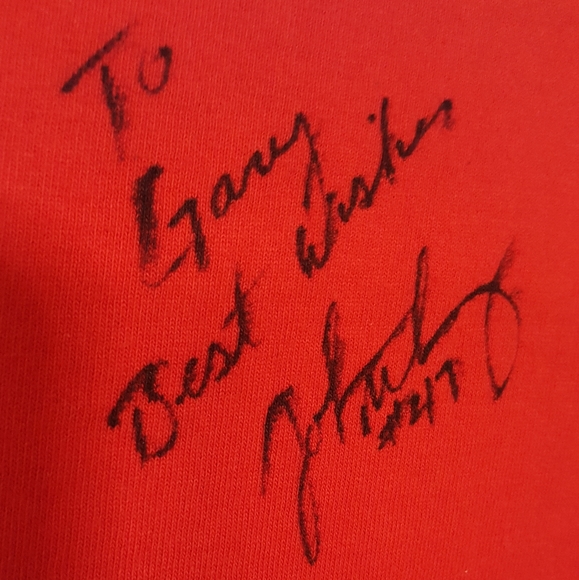 To
Gary
Best Wishes
#47